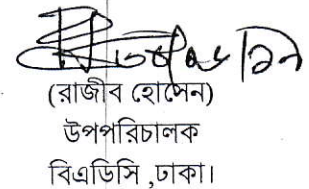 (রাজীব হোসেন)
উপপরিচালক
বিএডিসি ,ঢাকা।